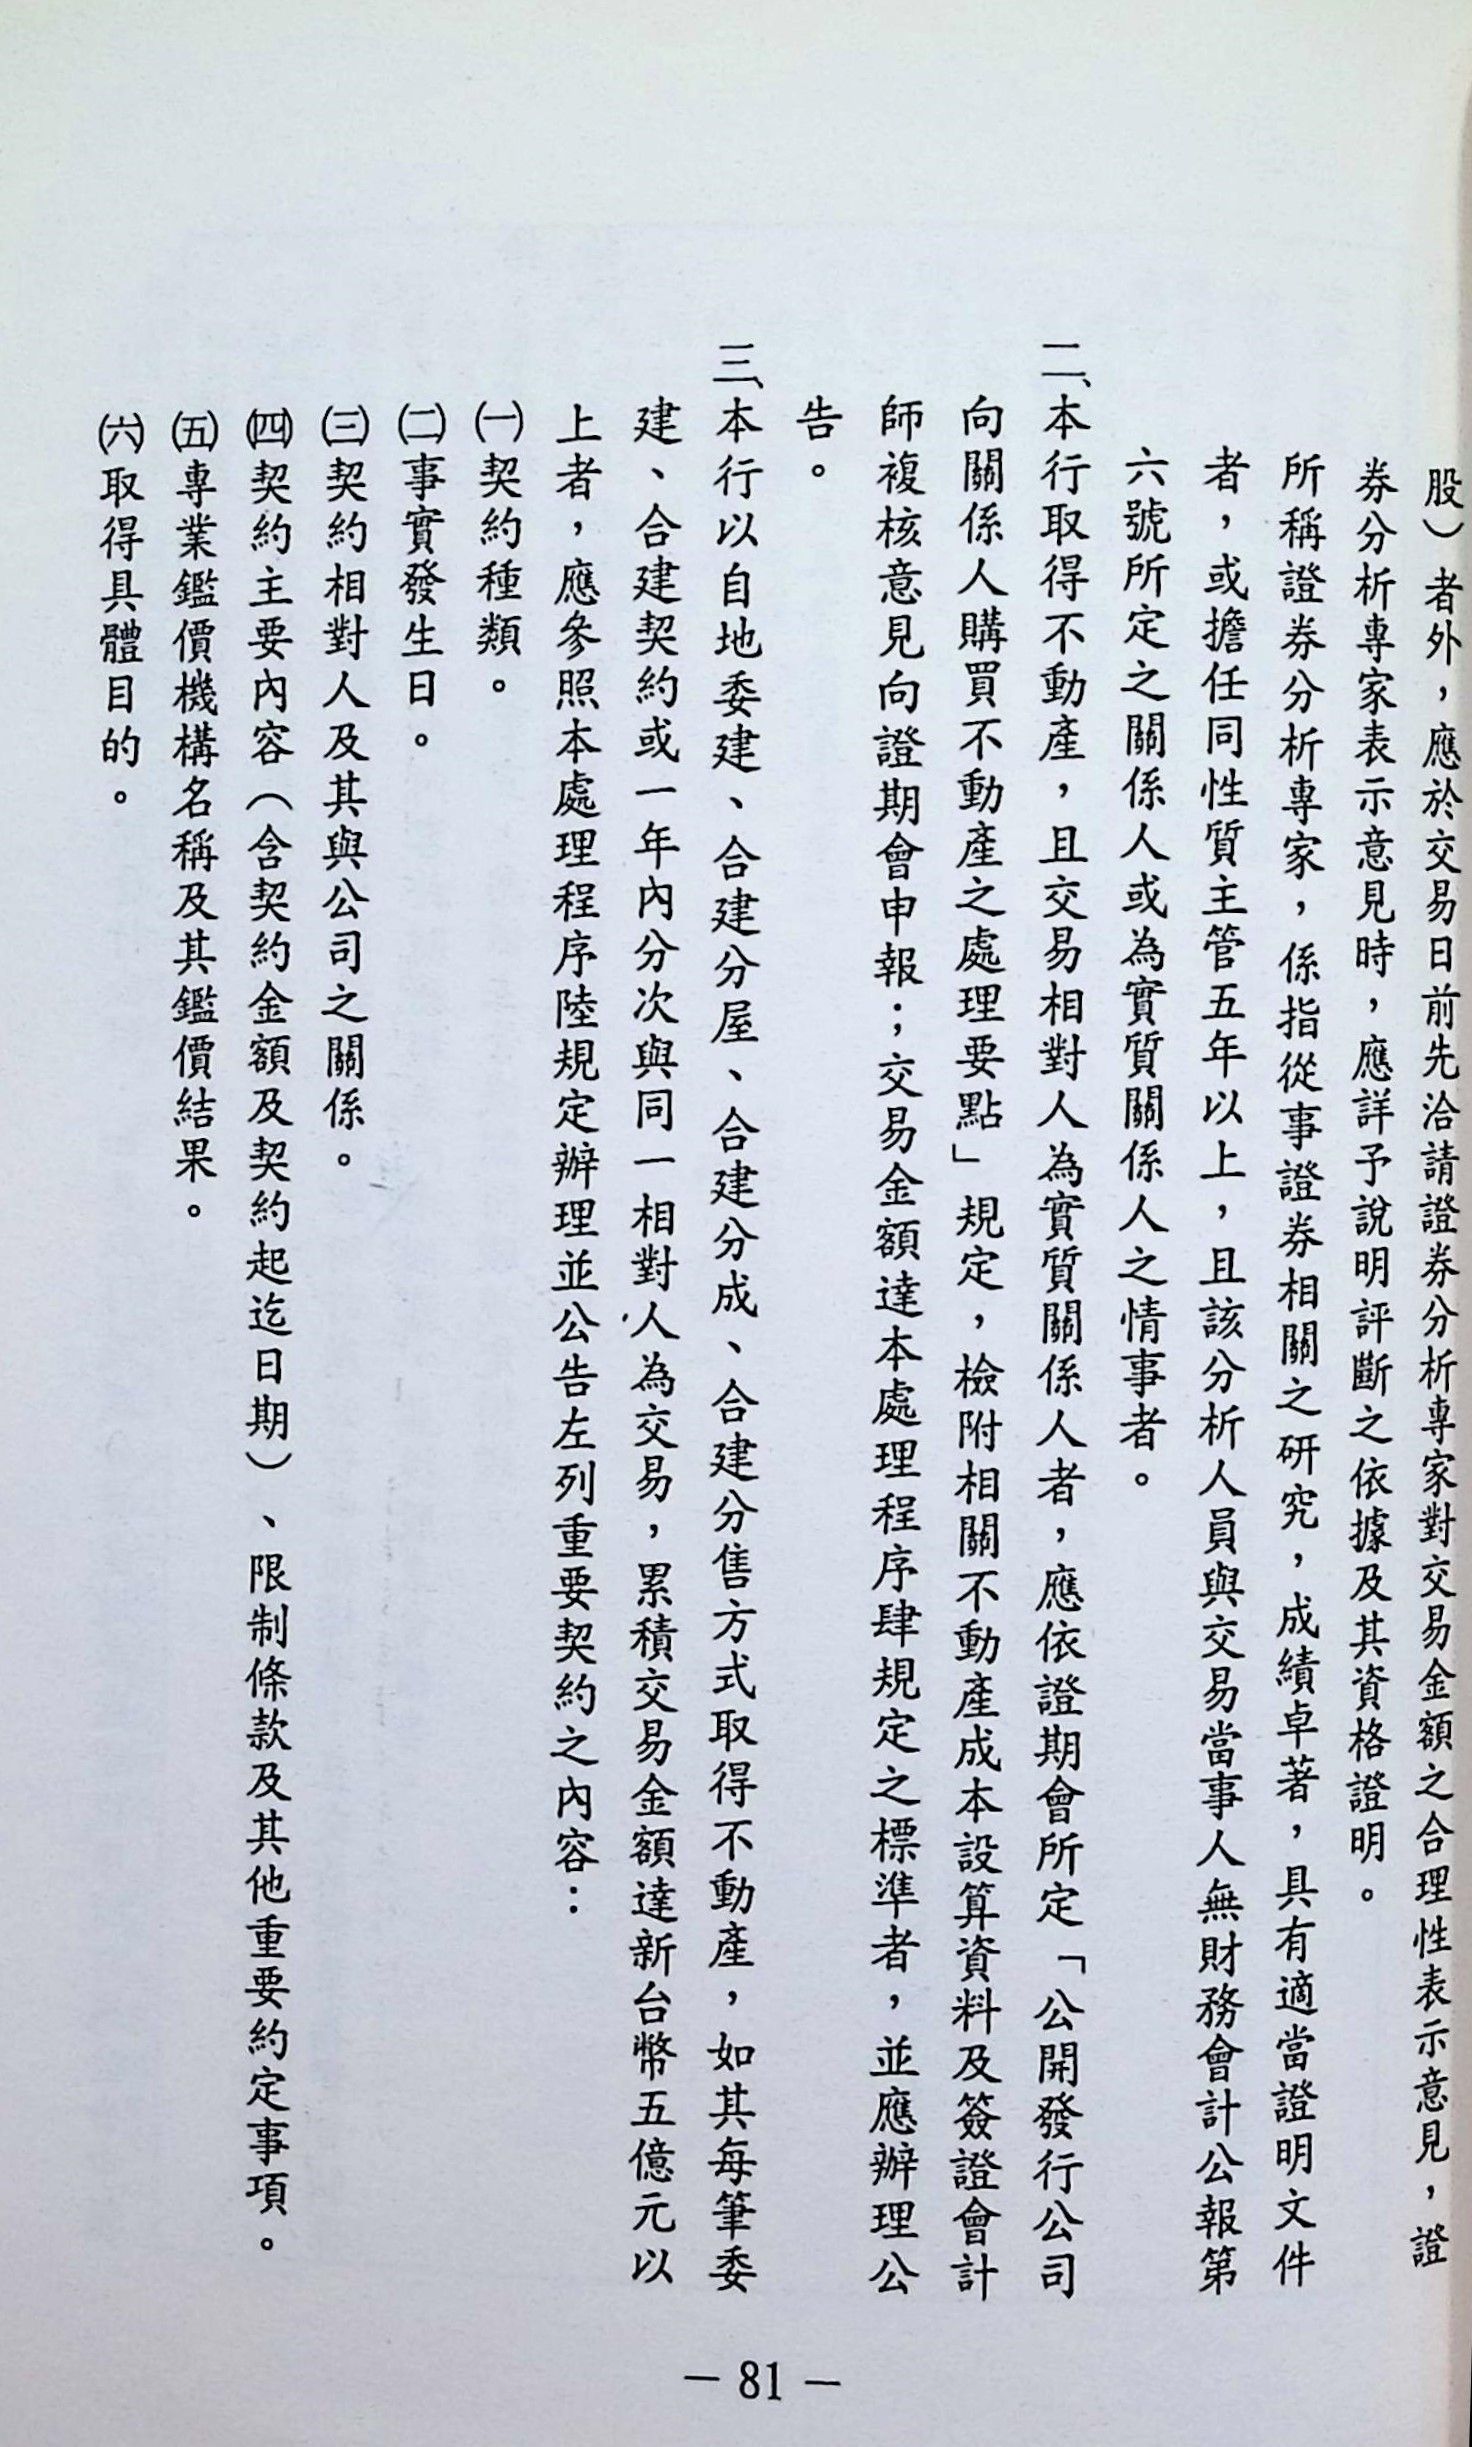 股）者外，應於交易日前先洽請證券分析專家對交易金額之合理性表示意見，證
券分析專家表示意見時，應詳予說明評斷之依據及其資格證明。
所稱證券分析專家，係指從事證券相關之研究，成績卓著，具有適當證明文件
者，或擔任同性質主管五年以上，且該分析人員與交易當事人無財務會計公報第
六號所定之關係人或為實質關係人之情事者。
二、本行取得不動產，且交易相對人為實質關係人者，應依證期會所定「公開發行公司
向關係人購買不動產之處理要點」規定，檢附相關不動產成本設算資料及簽證會計
師複核意見向證期會申報；交易金額達本處理程序肆規定之標準者，並應辦理公
告。
三、本行以自地委建、合建分屋、合建分成、合建分售方式取得不動產，如其每筆委
建、合建契約或一年內分次與同一相對人為交易，累積交易金額達新台幣五億元以
上者，應參照本處理程序陸規定辦理並公告左列重要契約之內容：
㈠契約種類。
㈡事實發生日。
㈢契約相對人及其與公司之關係。
㈣契約主要內容（含契約金額及契約起迄日期）、限制條款及其他重要約定事項。
㈤專業鑑價機構名稱及其鑑價結果。
㈥取得具體目的。
－81－